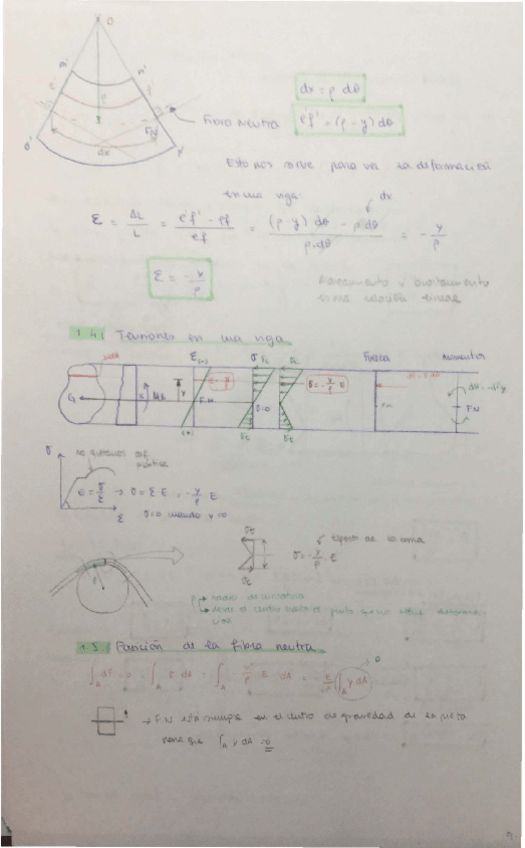 O
m'
n'
e'
f'
ρ
FN
O'
dx
Fibra neutra
dx = ρ dθ
e'f' = (ρ - y) dθ
Esto nos sirve para ver la deformación
en una viga.
dx
ε = ΔL/L = (e'f' - ef)/ef = ((ρ - y) dθ - ρ dθ)/(ρ dθ) = - y/ρ
ε = - y/ρ
Alargamiento y acortamiento
en una relación lineal
1.4. Tensiones en una viga.
ε(-)
σ
σc
σc
Fuerza
Momentos
G
y
F.N
(+)
σ=0
σ = - y/ρ E
σt
σt
F.N
F.N
σ
E = σ/ε → σ = ε·E = - y/ρ E
ε
σ=0 cuando y=0
σc
σt
σ = - y/ρ E
ρ → radio de curvatura
desde el centro hasta el punto que no sufre
1.5 Función de la fibra neutra.
∫A dF = 0 = ∫A σ dA = ∫A - y/ρ E dA = - E/ρ ∫A y dA
0
→ F.N está siempre en el centro de gravedad de la pieza
para que ∫A y dA = 0